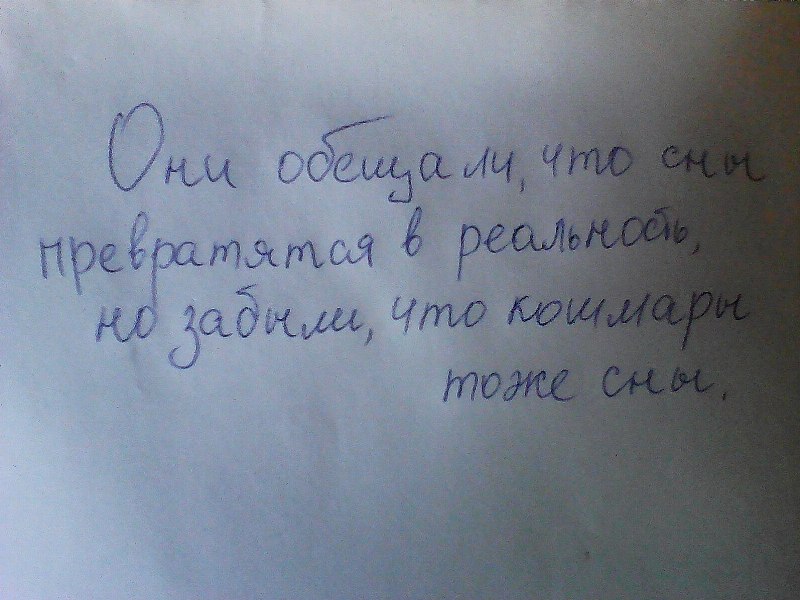 Они обещали, что сны
превратятся в реальность,
но забыли, что кошмары
тоже сны.